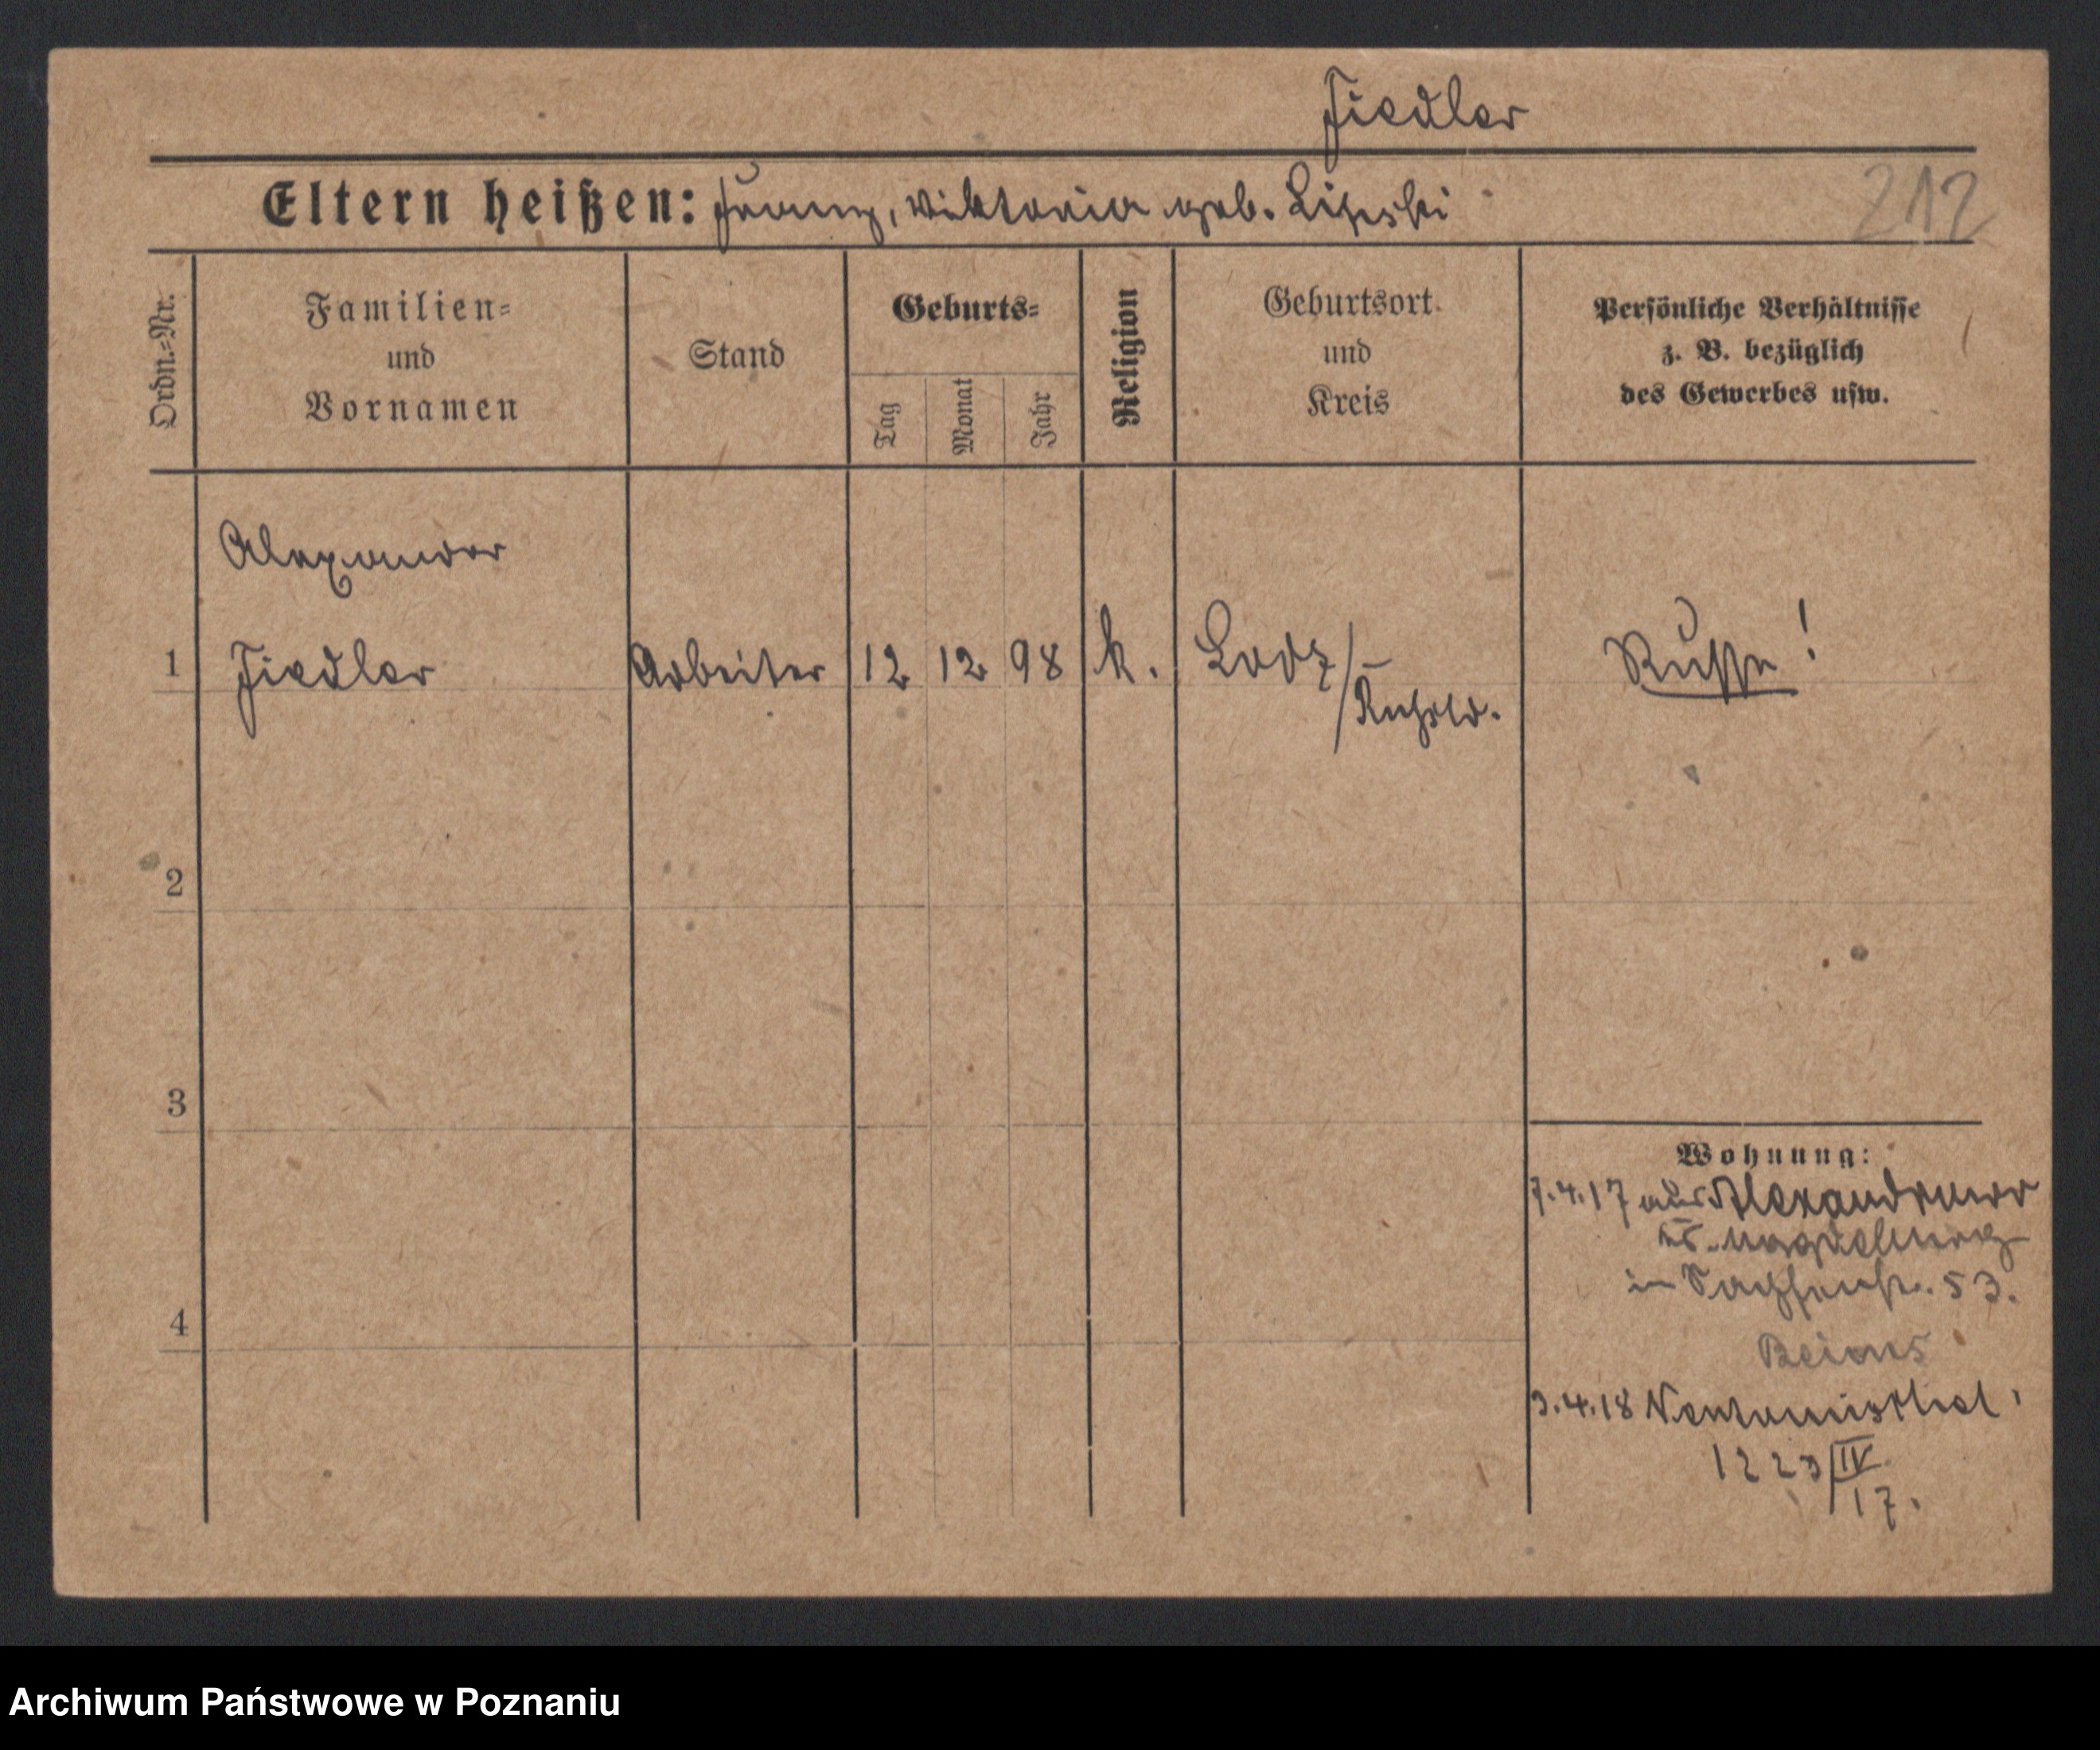 Fiedler
Eltern heißen: Franz, Viktoria geb. Lipski
212
Ordn.-Nr.
Familien-
und
Vornamen
Stand
Geburts-
Tag
Monat
Jahr
Religion
Geburtsort
und
Kreis
Persönliche Verhältnisse
z. B. bezüglich
des Gewerbes usw.
Alexander
1 Fiedler Arbeiter 12 12 98 k. Lodz/
Russe!
Rußld.
2
3
4
Wohnung:
7.4.17 aus
in 53.
3.4.18
1223/IV
17.
Archiwum Państwowe w Poznaniu